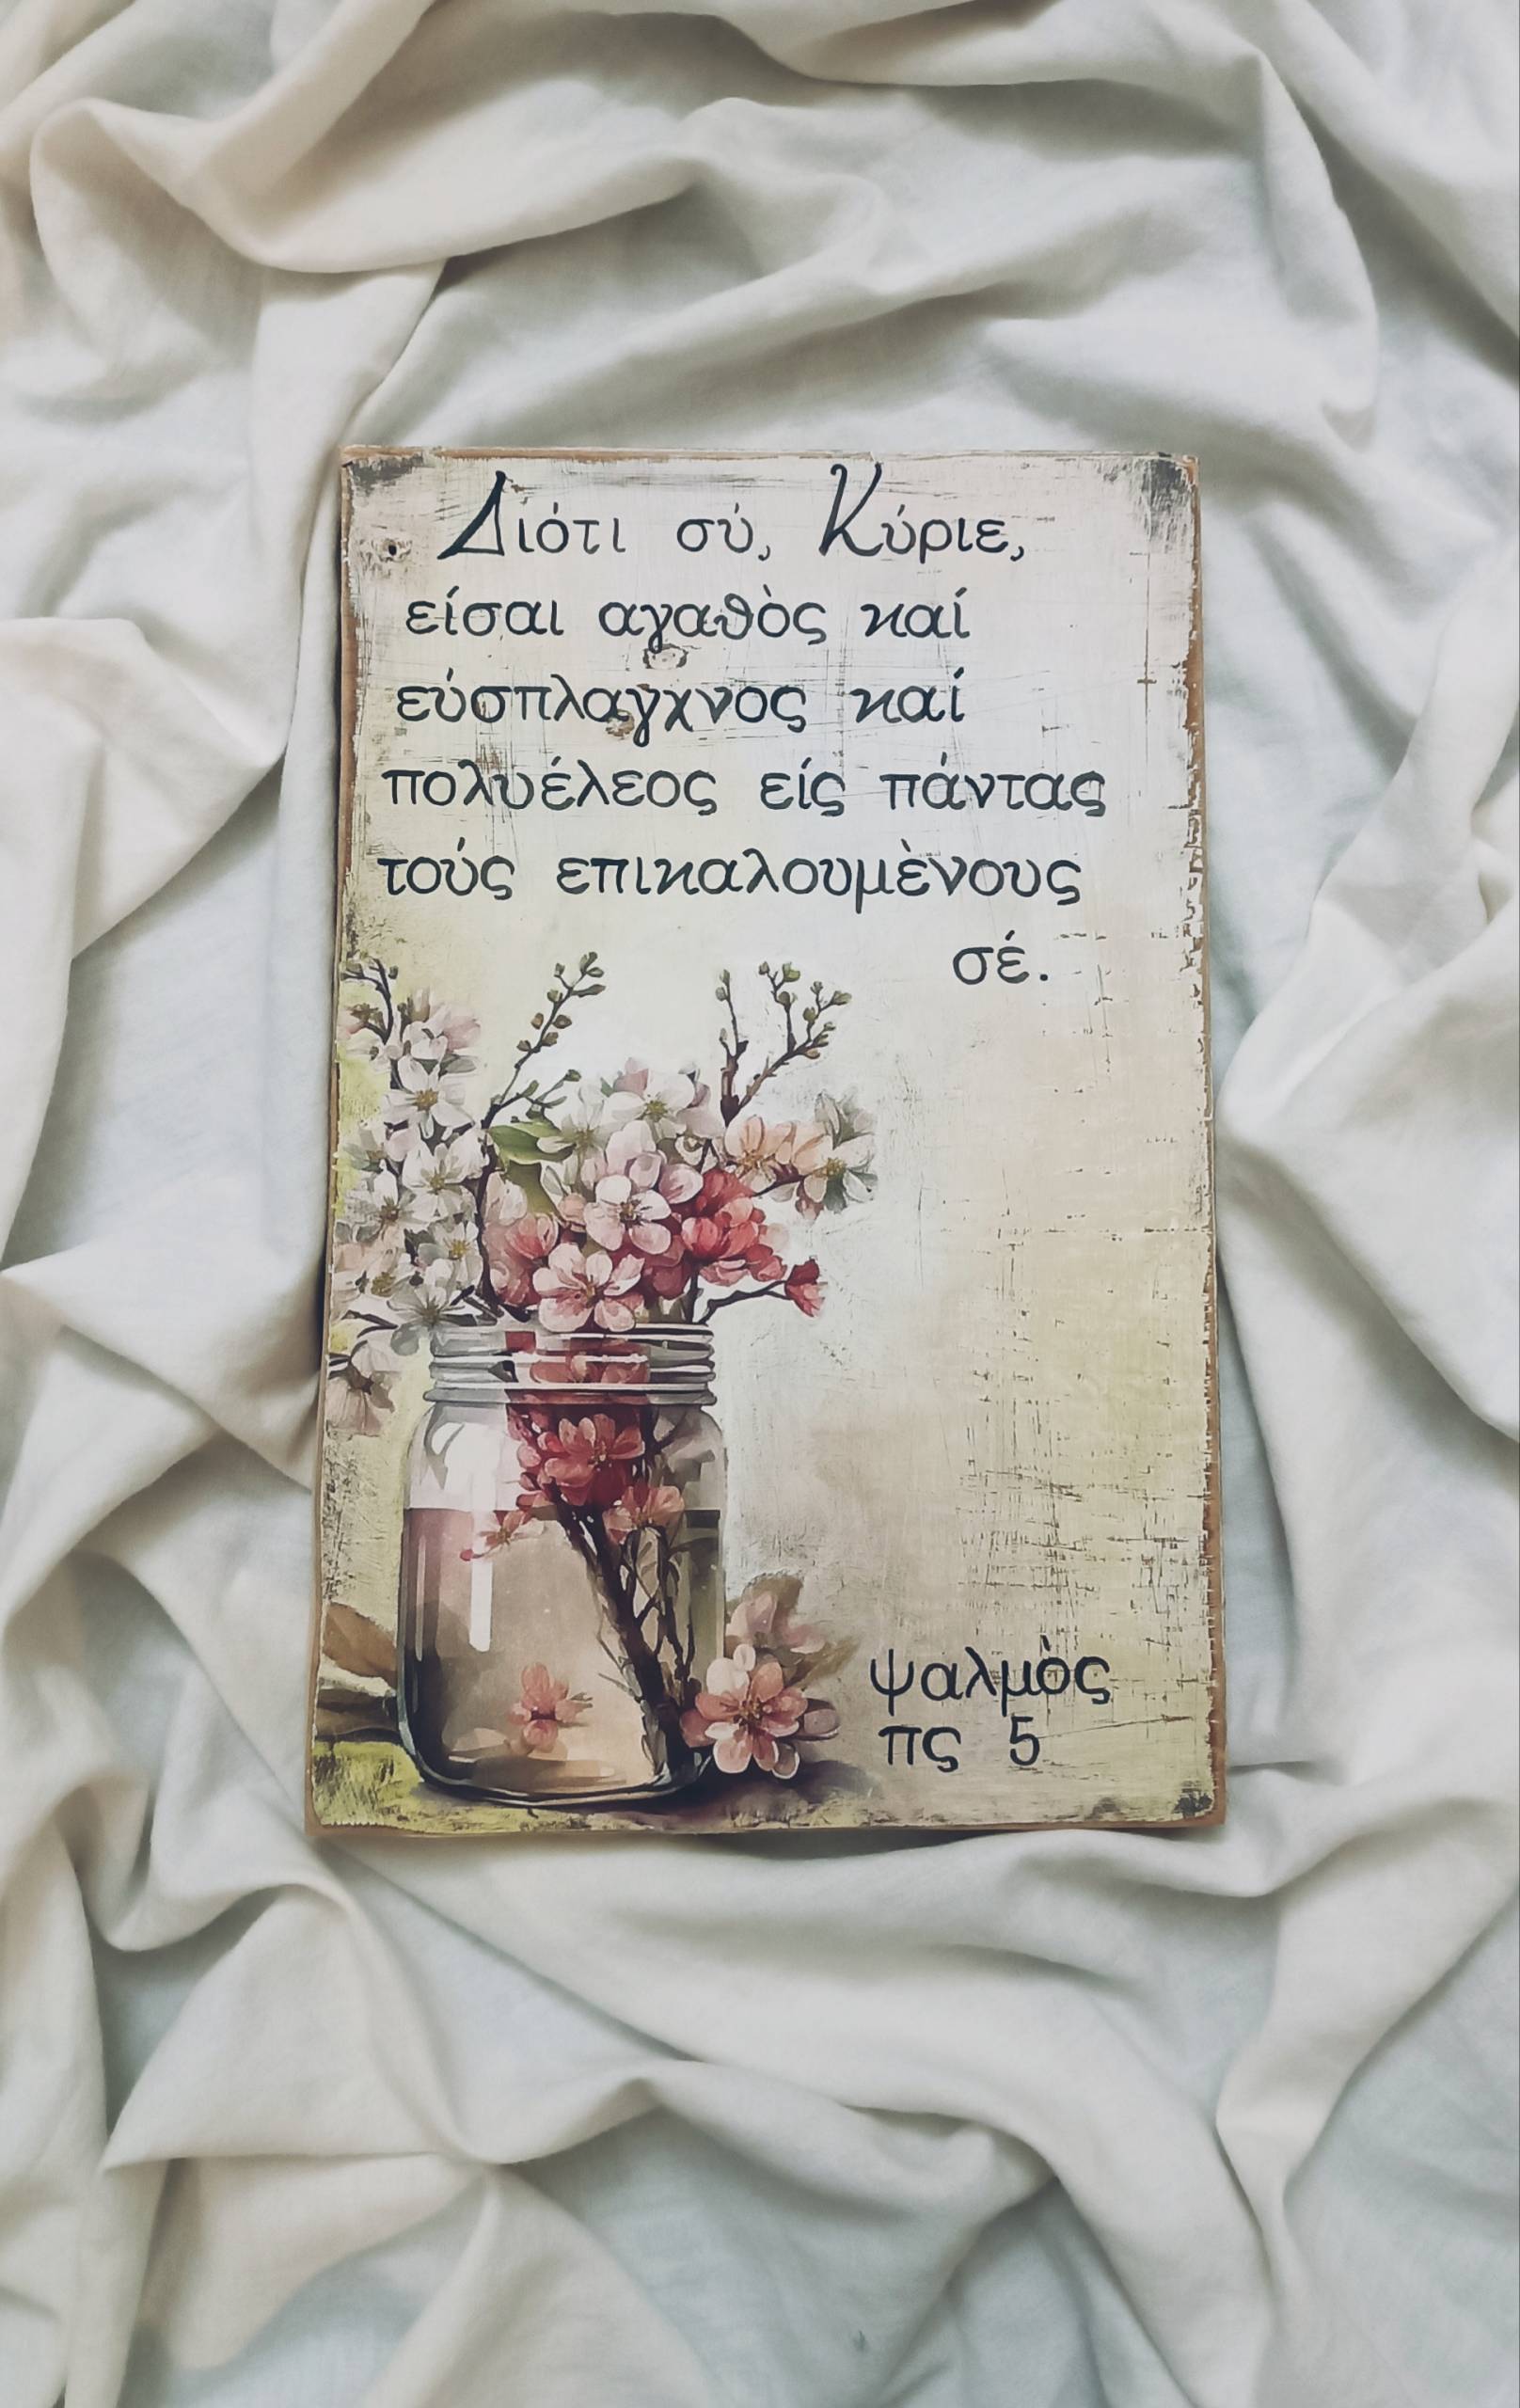 Διότι σύ, Κύριε,
είσαι αγαθὸς καί
εύσπλαγχνος καί
πολυέλεος είς πάντας
τούς επικαλουμὲνους
σέ.
ψαλμὸς
πς 5